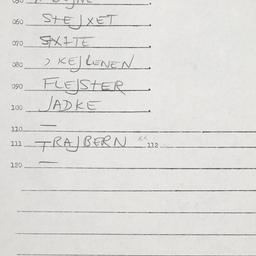 060 STEJXET
070 SXITE
080 , KEJLENEN
090 FLEJSTER
100 JADKE
110 —
111 TRAJBERN " 112
120 —